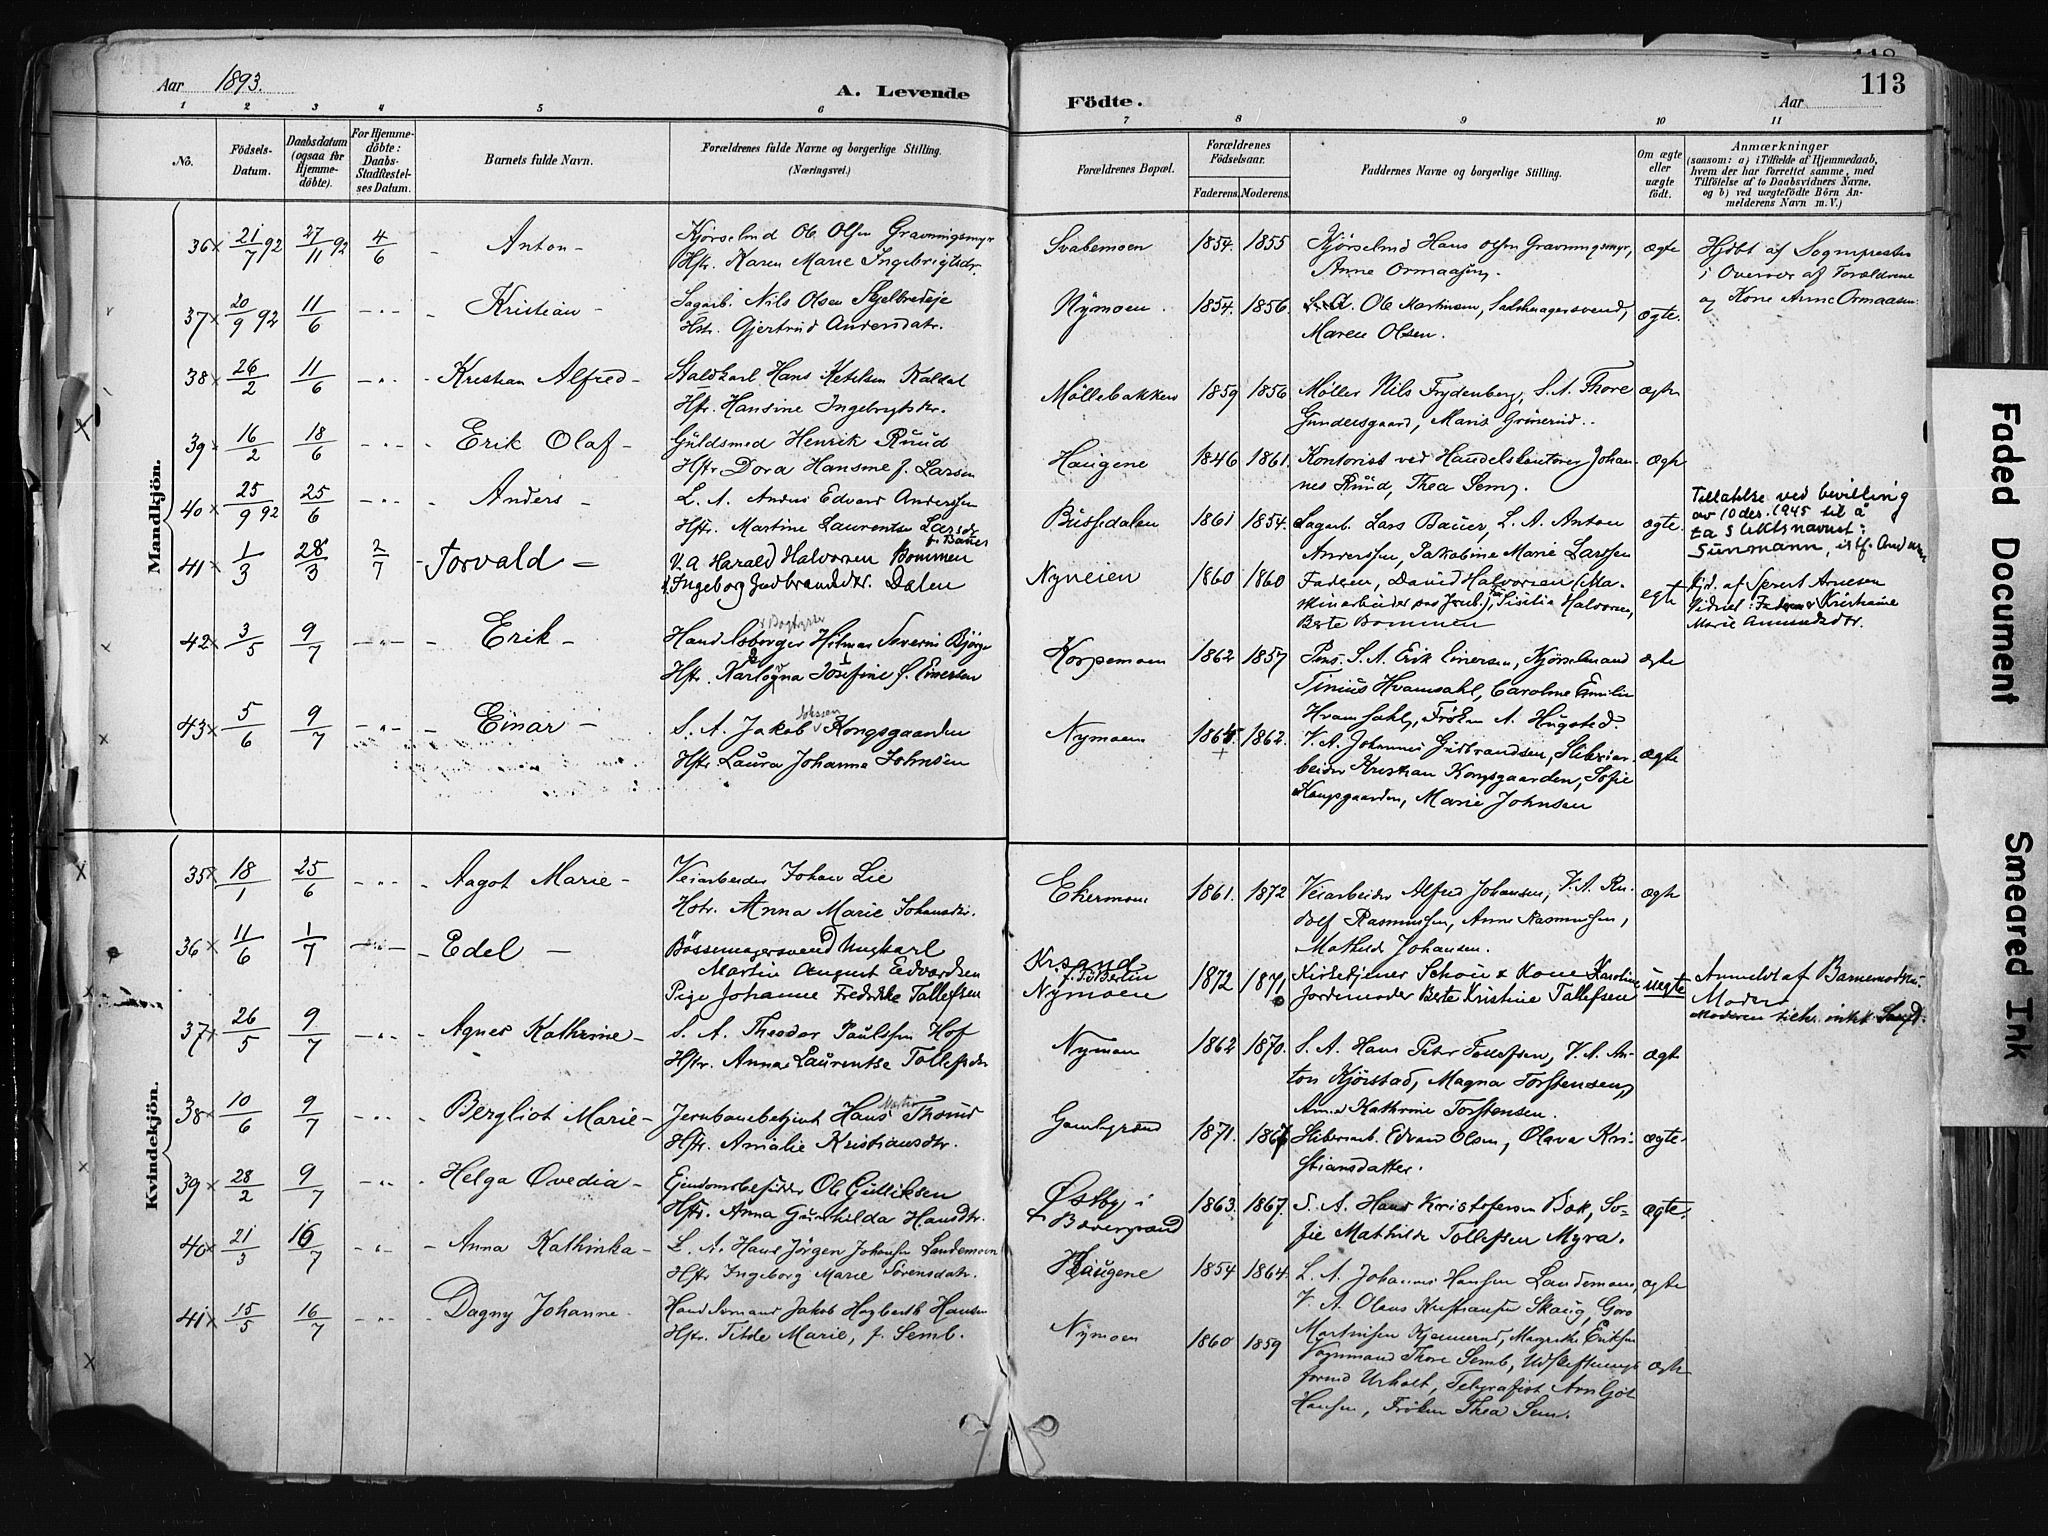 113
Aar 1893.
A. Levende
Födte.
Aar
1 2 3 4 5 6 7 8 9 10 11
No.
Födsels-Datum.
Daabsdatum (ogsaa for Hjemmedöbte).
For Hjemmedöbte: Daabs-Stadfæstelses Datum.
Barnets fulde Navn.
Forældrenes fulde Navne og borgerlige Stilling. (Næringsvei.)
Forældrenes Bopæl.
Forældrenes Födselsaar.
Faderens. Moderens.
Faddernes Navne og borgerlige Stilling.
Om ægte eller uægte födt.
Anmærkninger
(saasom: a) i Tilfælde af Hjemmedaab,
hvem der har forrettet samme, med
Tilföielse af to Daabsvidners Navne,
og b) ved uægtefödte Börn Anmelderens Navn m. V.)
Mandkjön.
36 21/7 92 27/11 92 4/6 Anton
Kjörselmd Ole Olsen Gravningsmyr
Hstr. Karen Marie Ingebrigtsdr.
Svabemoen 1854. 1855
Kjörselmd Hans Olsen Gravningsmyr,
Anne Ormaasen.
ægte
Hjdbt af Sognepresten
i Overvær af Forældrene
og Kone Anne Ormaasen.
37 20/9 92 11/6 Kristian
Sagarb. Nils Olsen Skjelbredeje
Hstr. Gjertrud Andersdatr.
Nymoen. 1854. 1856.
Ole Martinsen, Salmagersvend,
Maren Olsen.
ægte.
38 26/2 11/6 Kristian Alfred
Staldkarl Hans Ketilsen Kaldal
Hstr. Hansine Ingebrigtsdr.
Möllebakken 1859 1856
Møller Nils Frydenberg, S. A. Thore
Gundersgaard, Maris
ægte
39 16/2 18/6 Erik Olaf
Guldsmed Henrik Ruud
Hstr Dora Hansine f. Larsen
Haugene 1846 1861.
Kontorist ved Handelskontoret Johannes Ruud, Thea Sem.
ægte
40 25/9 92 25/6 Anders
L. A. Anders Edvard Anderssen
Hstr. Martine Laurentse Larsdr
f. Bauer
Bussedalen 1861 1854.
Sagarb. Lars Bauer, L. A. Anton
Anderssen, Jakobine Marie Larssen
ægte.
Tillatelse ved bevilling
av 10 des. 1945 til å
ta slektsnavnet:
Sunmann, istf. Andersen
41 1/3 28/3 2/7 Torvald
V. A Harald Halvorsen Bommen
Ingeborg Gudbrandsdtr. Dalen
Nyveien 1860 1860
Faderen, David Halvorsen (Maskinarbeider paa Jernb.), Sisilia Halvorsen,
Berte Bommen
egte
Hjd. af Sivert Arnesen
Vidner: Faderen & Kristiane
Marie Amundsdtr.
42 3/5 9/7 Erik
Handelsborger & Bogtrykker Hilmar Severin Bjørge
Hstr. Karlogna Josefine f. Einersen
Korpemoen 1862 1857
Pens. S. A. Erik Einersen, Kjörselmand
Tinius Hvamsahl, Caroline Emilie
Hvamsahl, Fröken A. Hugsted.
ægte
43 5/6 9/7 Einar
S. A. Jakob Kongsgaarden
Hstr Laura Johanne Johnsen
Nymoen 1862.
V. A. Johannes Gudbrandsen, Sliberiarbeider Kristian Kongsgaarden, Sofie
Kongsgaarden, Marie Johnsen
ægte
Kvindekjön.
35 18/1 25/6 Aagot Marie
Veiarbeider Johan Lie
Hstr. Anna Marie Johansdtr.
Ekermoen 1861. 1872
Veiarbeider Alfred Johansen, V. A. Rudolf Rasmussen, Anne Rasmussen,
Mathilde Johansen.
ægte
36 11/6 1/7 Edel
Bössemagersvend Ungkarl
Martin August Edvardsen
Pige Johanne Fredrikke Tollefsen
Nymoen 1872 1871
Kirketjener Schou & Kone Karoline
Jordemoder Berte Kristine Tollefsen
uegte
Anmeldt af Barnemodrens
Moder
37 26/5 9/7 Agnes Kathrine
S. A. Theodor Paulssen Hof
Hstr. Anna Laurentse Tollefsdr
Nymoen 1862 1870.
S. A. Hans Peter Tollefsen, V. A. Anton Kjörstad, Magna Torstensen,
Anna Kathrine Torstensen.
ægte
38 10/6 9/7 Bergliot Marie
Jernbanebetjent Hans Martin Thorud
Hstr. Amalie Kristiansdtr.
Gamlegrænd 1871.
Sliberiarb. Edvard Olsen, Olava Kristiansdatter.
ægte.
39 28/2 9/7 Helga Ovedia
Eiendomsbesidder Ole Gulliksen
Hstr. Anna Gunhilda Hansdtr.
Østby i
Bævergrænd 1863. 1867.
S. A. Hans Kristofersen Bok, Sofie Mathilde Tollefsen Myra.
ægte.
40 21/3 16/7 Anna Kathinka
L. A. Hans Jörgen Johansen Landemoen
Hstr Ingeborg Marie Sörensdatr.
Haugene 1854 1864.
L. A. Johannes Hansen Landemoen,
V. A. Olaus Kristiansen Skaug, Goro
Martinsen Kjennerud, Margrethe Eriksen
ægte
41 15/5 16/7 Dagny Johanne
Handelsmand Jakob Hagbarth Hansen
Hstr. Tilde Marie, f. Semb.
Nymoen 1860 1859
Vognmand Thore Semb, Udskiftningsformd Urholt, Telegrafist Arn Gjöt
Hansen, Fröken Thea Sem.
ægte
Faded Document
Smeared Ink